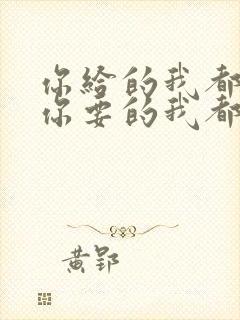 你给的我都
你要的我都
黄郢